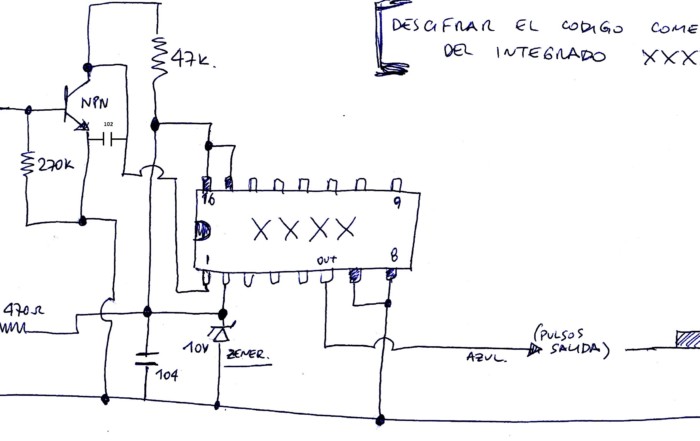 DESCIFRAR EL CODIGO COME
DEL INTEGRADO XXX
47K.
NPN
102
270K
16
9
XXXX
1
OUT
8
470Ω
10V
ZENER.
104
AZUL.
(PULSOS
SALIDA)